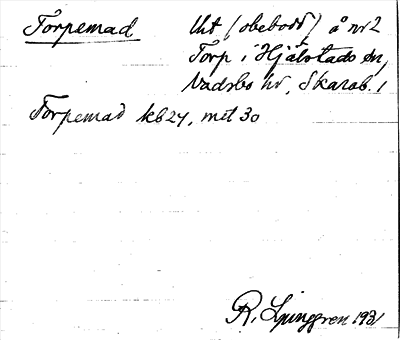 Torpemad lht (obebodd) å nr 2
Torp i Hjälstads sn,
Vadsbo hd, Skarab. l
Torpemad kb 24, met 30
R. Ljunggren 1931